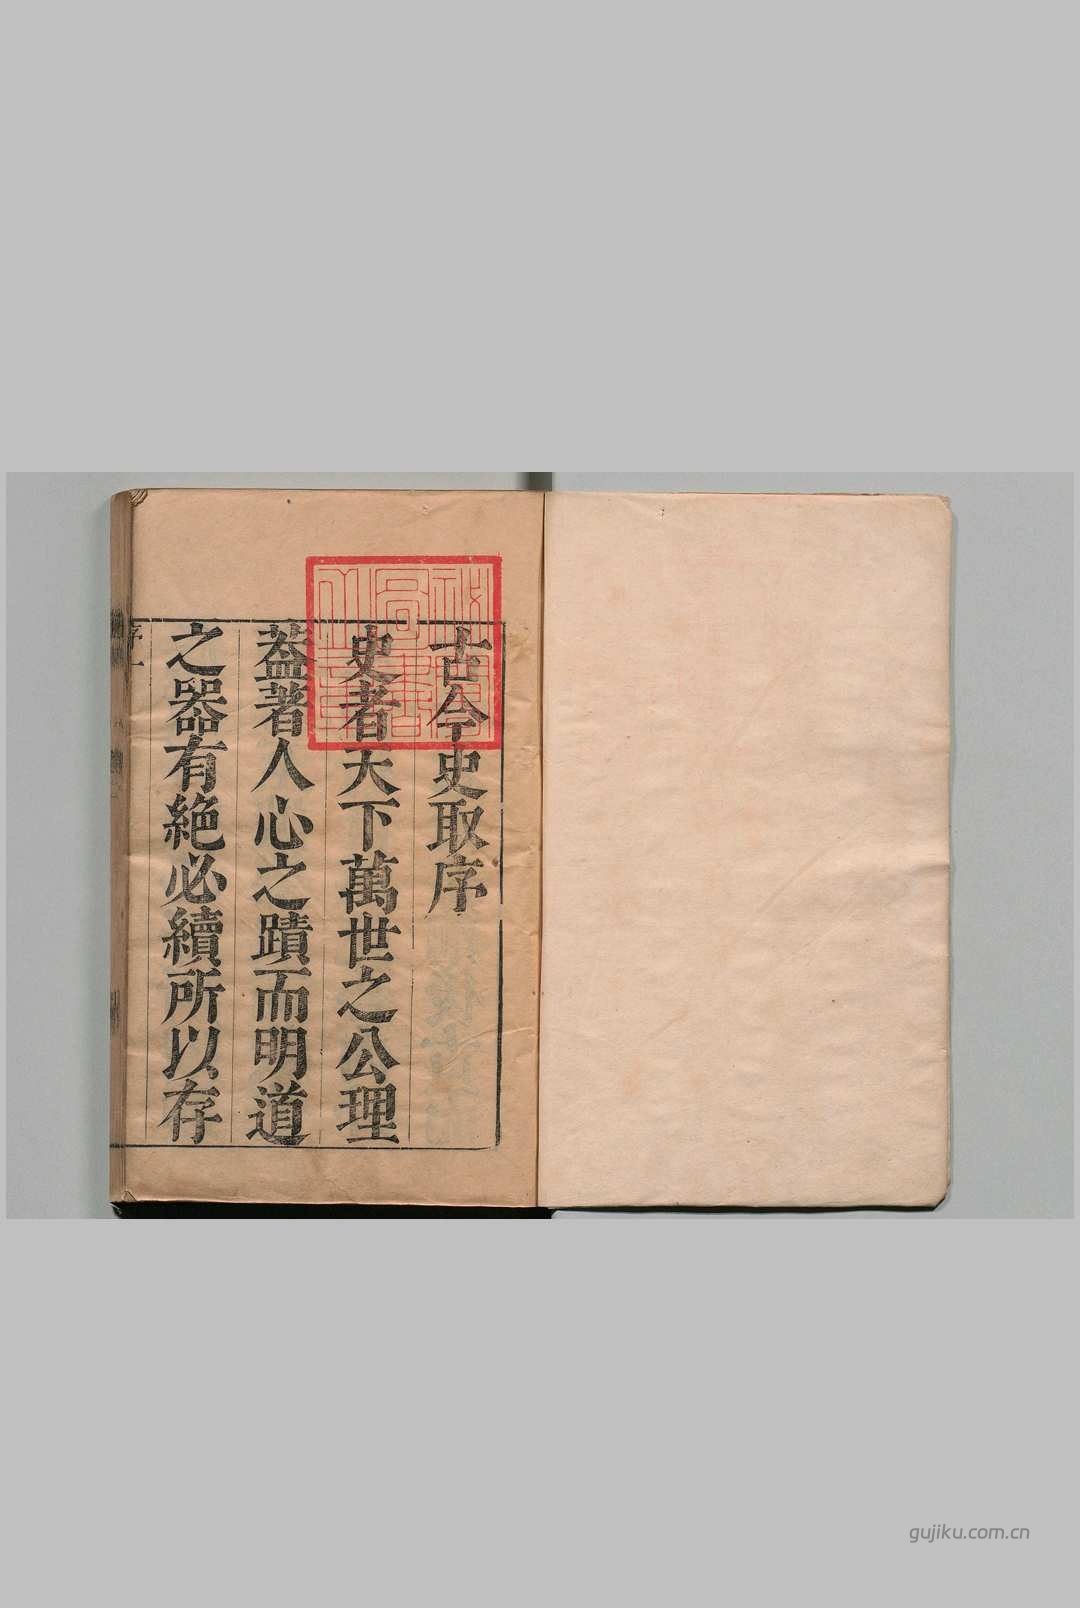 古今史取序
史者天下萬世之公理
葢著人心之蹟而明道
之器有絶必續所以存
序一
gujiku.com.cn